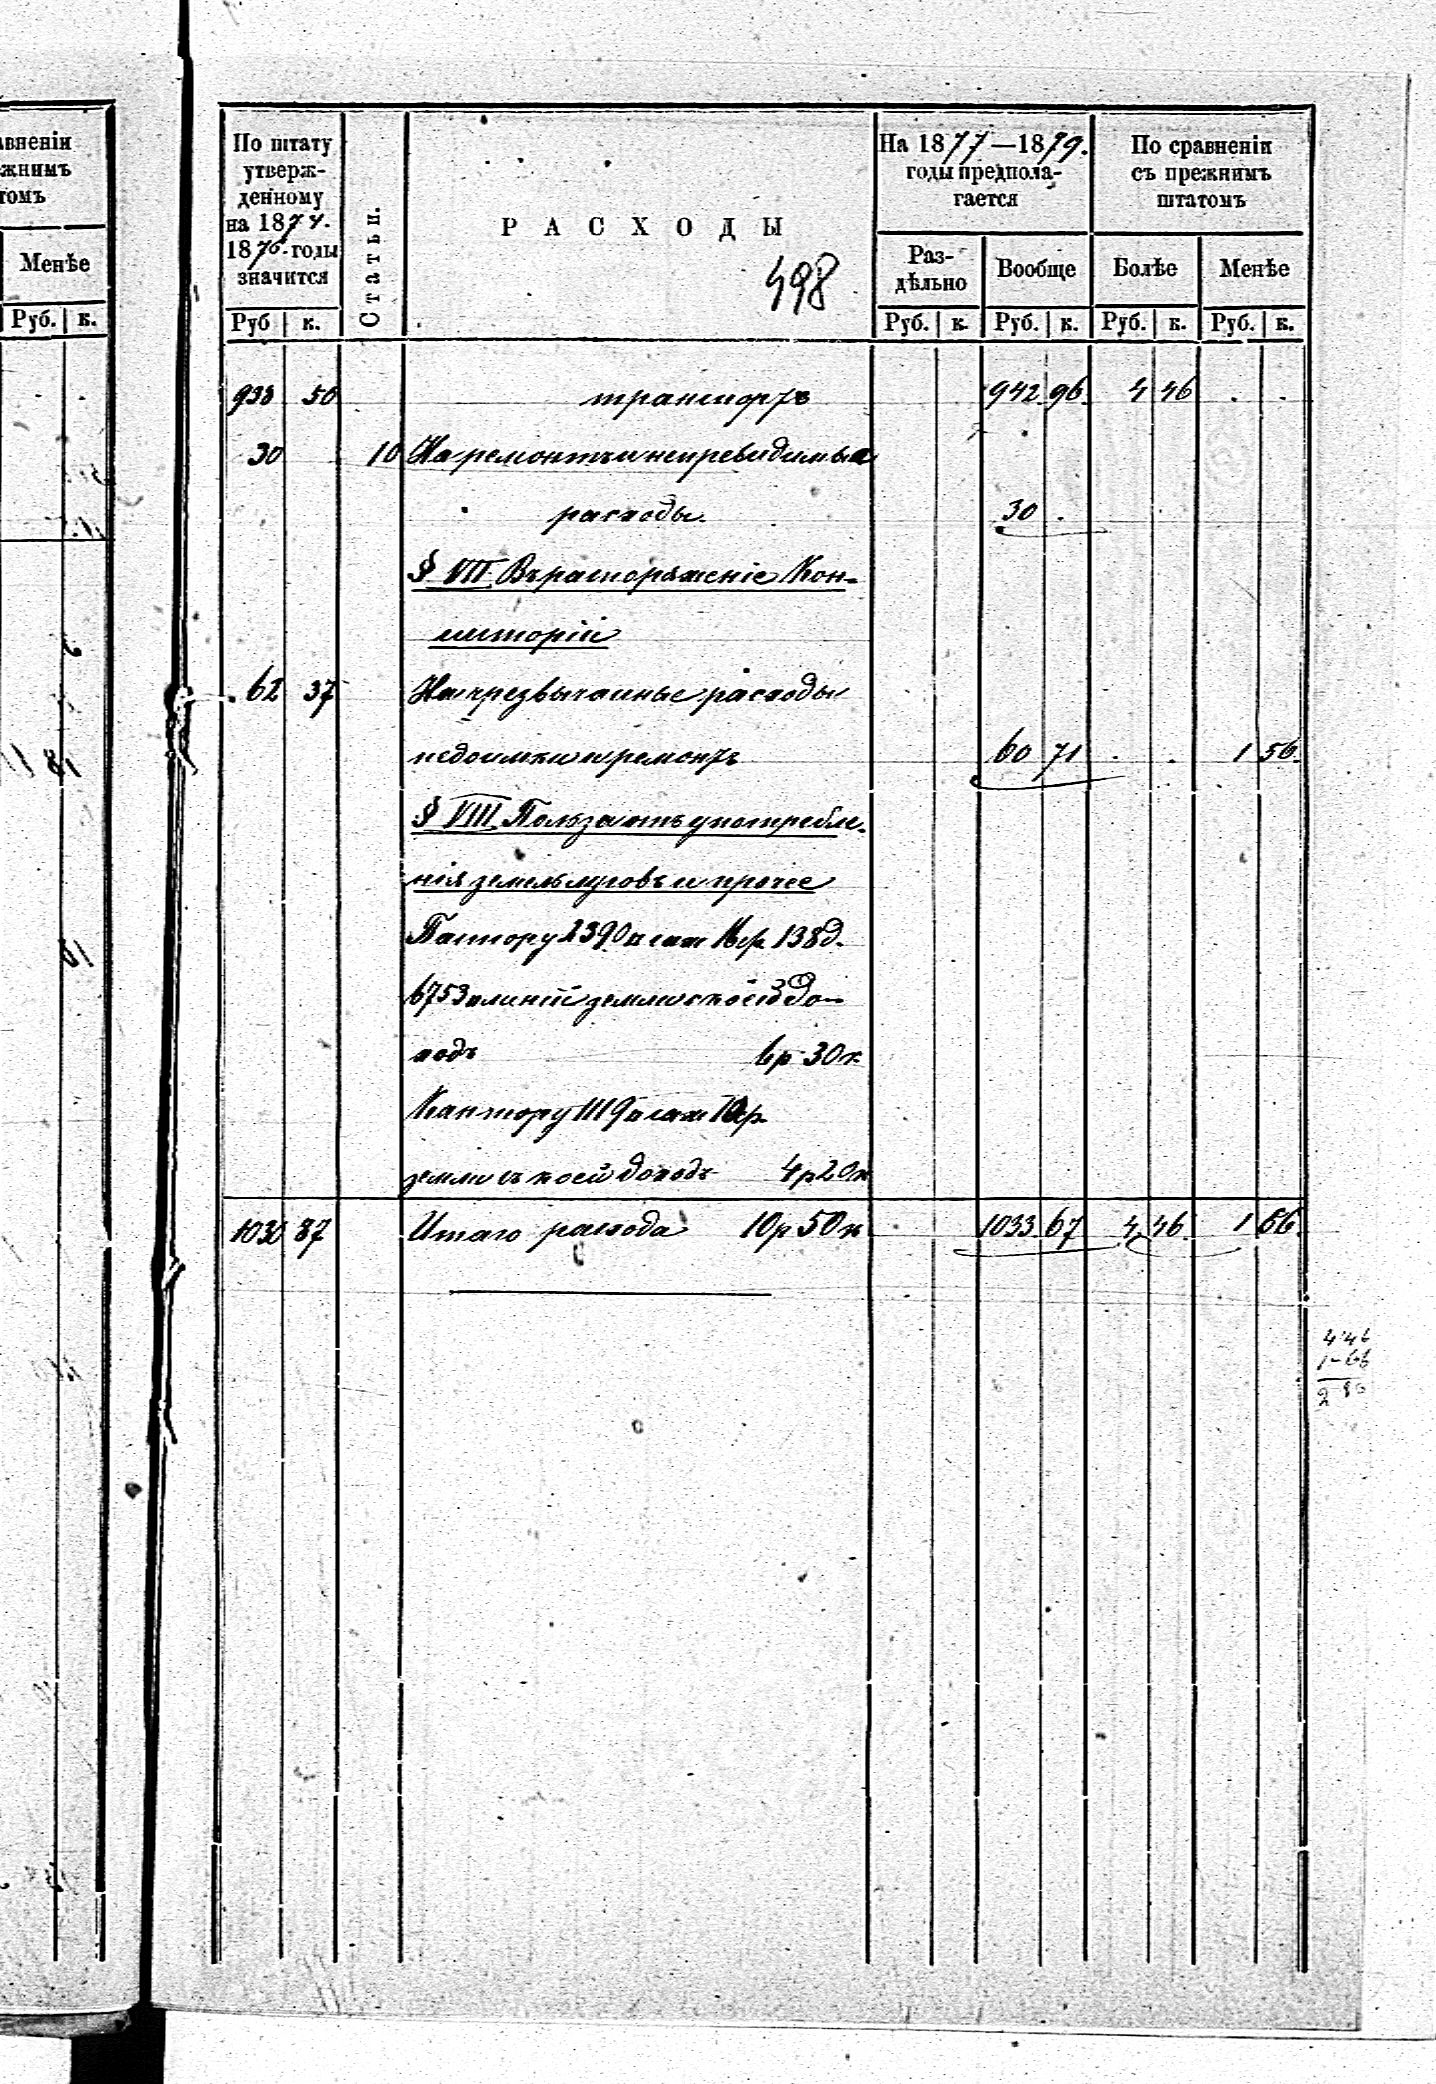 авненіи
жнимъ
томъ
Менѣе
Руб. к.
По штату
утверж-
денному
на 1874-
1876 годы
значится
Руб к.
Статьи.
РАСХОДЫ
498
На 1877—1879.
годы предпола-
гается
Раз-
дѣльно
Вообще
Руб. к. Руб. к.
По сравненіи
съ прежнимъ
штатомъ
Болѣе Менѣе
Руб. к. Руб. к.
938 50 транспортъ 942 96 4 46 . .
30 10 На ремонтъ и непревидимые
расходы 30 .
§ VII. Въ распоряженіе Кон-
систоріи
62 37 На чрезвычайные расходы
недоимки и ремонтъ 60 71 . . 1 56.
§ VIII. Польза отъ употребле-
нія земель луговъ и прочее
Пастору 2390 саж 138 д.
6753 земли съ коей до-
ходъ 6р 30к
Кантору 1119 саж
земли съ коей доходъ 4р 20к
1030 87 Итого расхода 10р 50к 1033 67 4 46 1 66.
4 46
1-66
2 80